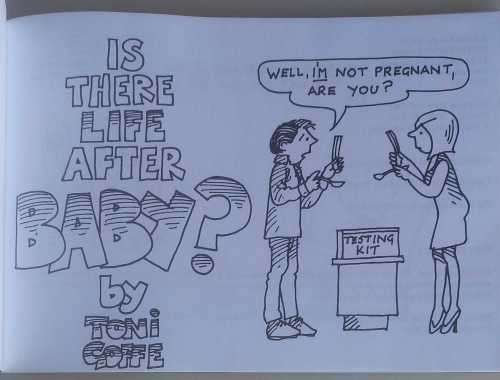 IS
THERE
LIFE
AFTER
BABY?
by
TONi
GOFFE
WELL, I'M NOT PREGNANT,
ARE YOU?
TESTING
KIT